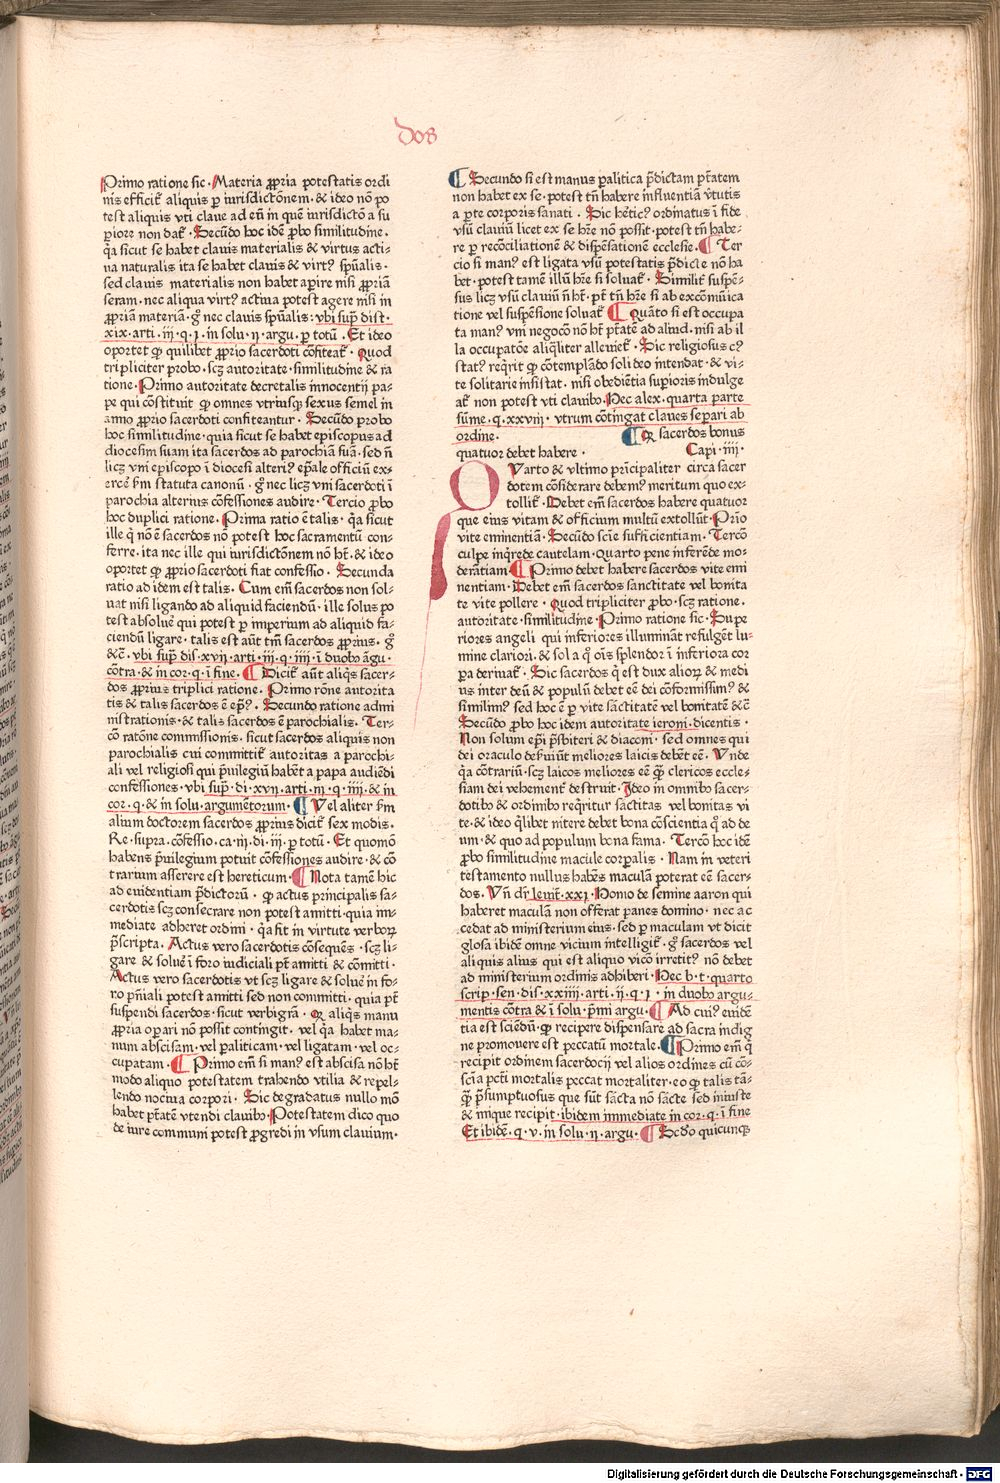 dos
Primo ratione sic · Materia ꝓpria potestatis ordi
nis efficit᷑ aliquis ꝑ iurisdictōnem · & ideo nō po
test aliquis vti claue ad eū in quē iurisdictō a su
ꝑiore non dat᷑ · Secūdo hoc idē ꝓbo similitudine ·
q̄a sicut se habet clauis materialis & virtus acti-
ua naturalis ita se habet clauis & virtꝰ spūalis ·
sed clauis materialis non habet aꝑire nisi ꝓpriā
seram · nec aliqua virtꝰ actiua potest agere nisi in
ꝓpriā materiā · gͦ nec clauis spūalis: vbi sup̄ dist ·
xix · arti · iij · q · j · in solu · vij · argu · ꝑ totū · Et ideo
oportet ꝙ quilibet ꝓprio sacerdoti cōfiteat᷑ · Quod
tripliciter probo · scꝫ autoritate · similitudine & ra
tione · Primo autoritate decretalis innocentij pa-
pe qui cōstituit ꝙ omnes vtriusqꝫ sexus semel in
anno ꝓprio sacerdoti confiteantur · Secūdo probo
hoc similitudine · quia sicut se habet episcopus ad
diocesim suam ita sacerdos ad parochiā suā · sed ñ
licꝫ vni episcopo ī diocesi alteriꝰ ep̄ale officiū ex-
erce᷑ ẜm statuta canonū · gͦ nec licꝫ vni sacerdoti ī
parochia alterius cōfessiones audire · Tercio ꝓbo
hoc duplici ratione · Prima ratio ē talis · q̄a sicut
ille q̇ nō ē sacerdos nō potest hoc sacramentū con-
ferre · ita nec ille qui iurisdictōnem nō hꝫ · & ideo
oportet ꝙ ꝓprio sacerdoti fiat confessio · Secunda
ratio ad idem est talis · Cum em̄ sacerdos non sol-
uat nisi ligando ad aliquid faciendū · ille solus po
test absolue᷑ qui potest ꝑ imperium ad aliquid fa-
ciendū ligare · talis est aūt tm̄ sacerdos ꝓprius · gͦ
&c̄ · vbi sup̄ dis · xvij · arti · iij · q · iiij · ī duobꝰ āgu ·
cōtra · & in cor · q · ī fine · Dicit᷑ aūt aliq̇s sacer-
dos ꝓprius triplici ratione · Primo rōne autorita
tis & talis sacerdos ē ep̄s · Secundo ratione admi
nistrationis · & talis sacerdos ē parochialis · Ter-
cō ratōne commissionis · sicut sacerdos aliquis non
parochialis cui committit᷑ autoritas a parochi-
ali vel religiosi qui p̄uilegiū habēt a papa audiēdi
confessiones · vbi sup̄ · di · xvij · arti · iij · q · iiij · & in
cor · q · & in solu · argumētorum · Vel aliter ẜm
alium doctorem sacerdos ꝓprius dicit᷑ sex modis ·
Re · supra · cōfessio · ca · iij · di · iij · ꝑ totū · Et quomō
habens p̄uilegium potuit cōfessiones audire · & cō
trarium asserere est hereticum · Nota tamē hic
ad euidentiam p̄dictorū · ꝙ actus principalis sa-
cerdotis scꝫ consecrare non potest amitti · quia im-
mediate adheret ordini · q̄a fit in virtute verboꝝ
p̄scripta · Actus vero sacerdotis cōsequēs · scꝫ li-
gare & solue᷑ ī foro iudiciali pt̄ amitti & cōmitti ·
Actus vero sacerdotis vt scꝫ ligare & solue᷑ in fo-
ro pn̄iali potest amitti sed non committi · quia pt̄
suspendi sacerdos · sicut verbigrā · ꝙ aliq̇s manu
ꝓpria oꝑari nō possit contingit · vel q̄a habet ma-
num abscisam · vel ꝑaliticam · vel ligatam · vel oc-
cupatam · Primo em̄ si manꝰ est abscisa nō hꝫ
modo aliquo potestatem trahendo vtilia & repel-
lendo nociua corpori · Sic degradatus nullo mō
habet pt̄atē vtendi clauibꝰ · Potestatem dico quo
de iure communi potest ꝓgredi in vsum clauium ·
Secundo si est manus ꝑalitica p̄dictam pt̄atem
non habet ex se · potest tn̄ habere influentiā v̇tutis
a ꝑte corporis sanati · Sic he᷑ticꝰ ordinatus ī fide
vsū clauiū licet ex se h̄re nō possit · potest tn̄ habe-
re ꝑ recōciliationē & dispēsationē ecclesie · Ter
cio si manꝰ est ligata vsū potestatis p̄dicte nō ha
bet · potest tamē illū h̄re si soluat᷑ · Similit᷑ suspē-
sus licꝫ vsū clauiū ñ hꝫ · pt̄ tn̄ h̄re si ab excōmūica
tione vel suspēsione soluat᷑ · Quāto si est occupa
ta manꝰ vni negocō nō hꝫ pt̄atē ad aliud · nisi ab il
la occupatōe aliq̇liter alleuiet᷑ · Sic religiosus cꝰ
statꝰ req̇rit ꝙ cōtemplādo soli deo intendat · & vi-
te solitarie insistat · nisi obediētia suꝑioris indulge
at᷑ non potest vti clauibꝰ · Hec alex · quarta parte
sūme · q · xxviij · vtrum cōtingat claues seꝑari ab
ordine · ꝙ sacerdos bonus
quatuor debet habere · Capi · iiij ·
Quarto & vltimo prīcipaliter circa sacer
dotem cōsiderare debemꝰ meritum quo ex-
tollit᷑ · Debet em̄ sacerdos habere quatuor
que eius vitam & officium multū extollūt · Prīo
vite eminentiā · Secūdo scīe sufficientiam · Tercō
culpe inq̇rēde cautelam · Quarto pene inferēde mo-
deratiam · Primo debet habere sacerdos vite emi
nentiam · Debet em̄ sacerdos sanctitate vel bonita
te vite pollere · Quod tripliciter ꝓbo · scꝫ ratione ·
autoritate · similitudine · Primo ratione sic · Supe
riores angeli qui inferiores illuminār refulgēt lu-
mine clariori · & sol a q̇ oīs splendor ī inferiora cor
ꝑa deriuat᷑ · Sic sacerdos q̇ est dux alioꝝ & medi
us inter deū & populū debet eē dei cōformissimꝰ &
similimꝰ sed hoc ē ꝑ vite sāctitatē vel bonitatē &c̄
Secūdo ꝓbo hoc idem autoritate ieroni · dicentis ·
Non solum ep̄i p̄sbiteri & diaconi · sed omnes qui
dei oraculo deẜuiūt meliores laicis debēt eē · Vnde
q̄a cōtrariū · scꝫ laicos meliores eē ꝙ clericos eccle-
siam dei vehement᷑ destruit · Ideo in omnibꝰ sacer-
dotibꝰ & ordinibꝰ req̇ritur sāctitas vel bonitas vi
te · & ideo q̇libet nitere debet bona cōscientia q̇ ad de
um · & quo ad populum bona fama · Tercō hoc idē
ꝓbo similitudine macule corꝑalis · Nam in veteri
testamento nullus habēs maculā poterat eē sacer-
dos · Vn̄ dr̄ leuit · xxj · Homo de semine aaron qui
haberet maculā non offerat panes domino · nec ac
cedat ad ministerium eius · sed ꝑ maculam vt dicit
glosa ibidē omne vicium intelligit᷑ · gͦ sacerdos vel
aliquis alius qui est aliquo vicō irretitꝰ nō debet
ad ministerium ordinis adhiberi · Hec b · t · quarto
scrip · sen · dis · xxiiij · arti · ij · q · j · in duobꝰ argu-
mentis cōtra & ī solu · pͥmi argu · Ad cuiꝰ euidē
tia est sciēdū · ꝙ recipere dispensare ad sacra indig
ne promouere est peccatū mortale · Primo em̄ q̇
recipit ordinem sacerdocij vel alios ordines cū cō-
scīa pctī mortalis peccat mortaliter · eo ꝙ talis tā-
ꝙ̄ p̄sumptuosus que sūt sācta nō sācte sed iniuste
& inique recipit · ibidem immediate in cor · q · ī fine
Et ibidē · q · v · in solu · ij · argu · Scd̄o quicunqꝫ
Digitalisierung gefördert durch die Deutsche Forschungsgemeinschaft - DFG